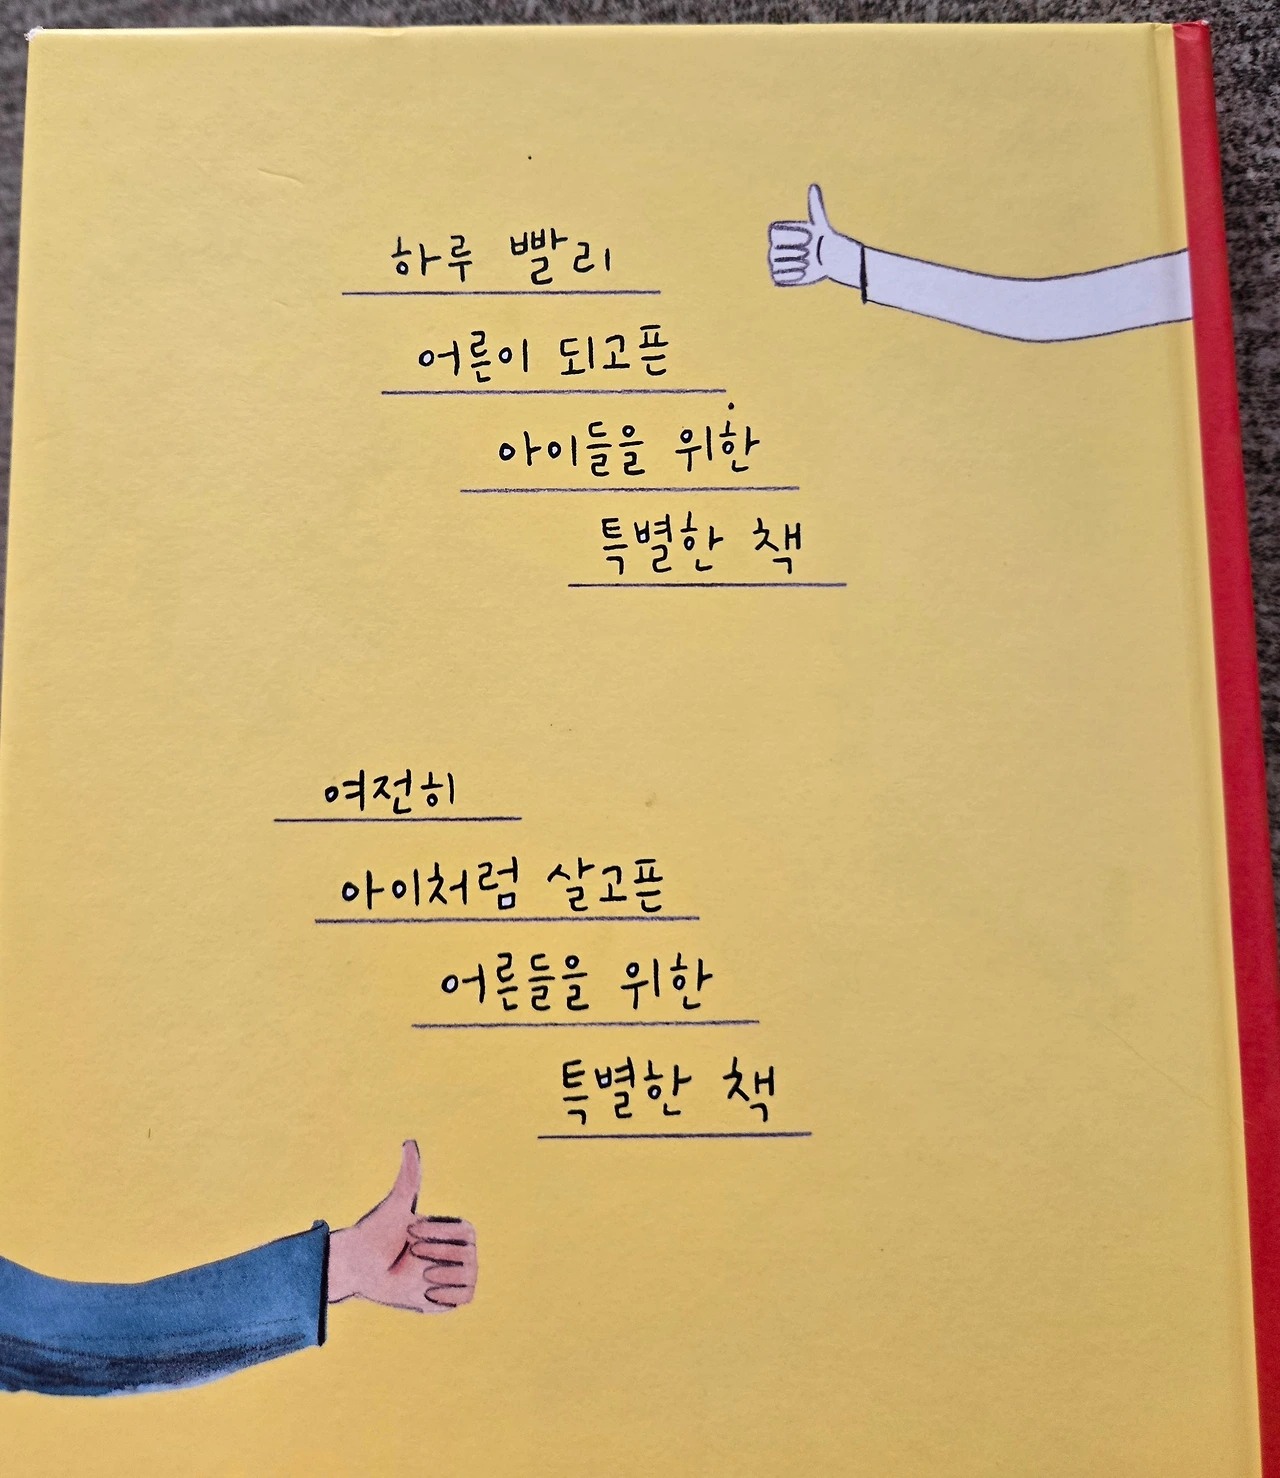 하루 빨리
어른이 되고픈
아이들을 위한
특별한 책
여전히
아이처럼 살고픈
어른들을 위한
특별한 책